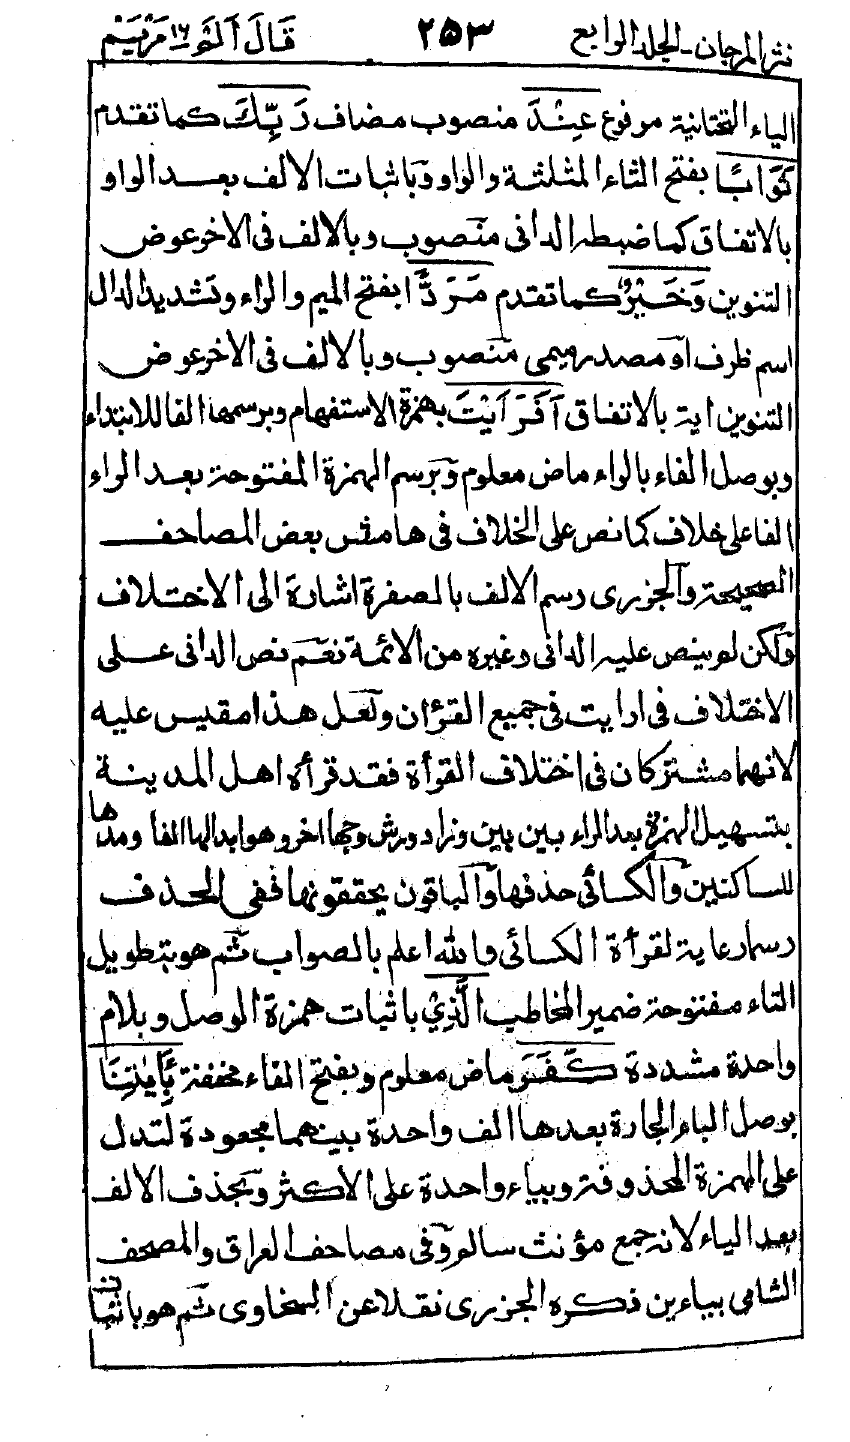 نثر المرجان۔الجلد الرابع ۲۵۳ قَالَ اَلَمْ ۱۶ مَرْيَم
الياء التحتانية مرفوع عِنْدَ منصوب مضاف رَبِّكَ كما تقدم
ثَوَابًا بفتح الثاء المثلثة والواو وباثبات الالف بعد الواو
بالاتفاق كما ضبطه الدانى منصوب وبالالف فى الاخر عوض
التنوين وَخَيْرٌ كما تقدم مَرَدًّا بفتح الميم والراء وتشديد الدال
اسم ظرف او مصدر ميمى منصوب وبالالف فى الاخر عوض
التنوين اية بالاتفاق اَفَرَاَيْتَ بهمزة الاستفهام وبرسمها الفا للابتداء
وبوصل الفاء بالراء ماض معلوم وبرسم الهمزة المفتوحة بعد الراء
الفا على خلاف كما نص على الخلاف فى هامش بعض المصاحف
الصحيحة والجزرى رسم الالف بالصفرة اشارة الى الاختلاف
ولكن لم ينص عليه الدانى وغيره من الائمة نعم نص الدانى على
الاختلاف فى ارايت فى جميع القرءان ولعل هذا مقيس عليه
لانهما مشتركان فى اختلاف القرأة فقد قرأه اهل المدينة
بتسهيل الهمزة بعد الراء بين بين وزاد ورش وجها اخر وهو ابدالها الفا ومدها
للساكنين والكسائى حذفها والباقون يحققونها ففى الحذف
رسما رعاية لقرأة الكسائى والله اعلم بالصواب ثم هو بتطويل
التاء مفتوحة ضمير المخاطب الَّذِىْ باثبات همزة الوصل وبلام
واحدة مشددة كَفَرَ ماض معلوم وبفتح الفاء مخففة بِاٰيٰتِنَا
بوصل الباء الجارة بعدها الف واحدة بينهما مجعودة لتدل
على الهمزة المحذوفة وبياء واحدة على الاكثر وبحذف الالف
بعد الياء لانه جمع مؤنث سالم وفى مصاحف العراق والمصحف
الشامى بياءين ذكره الجزرى نقلا عن السخاوى ثم هو باثبات